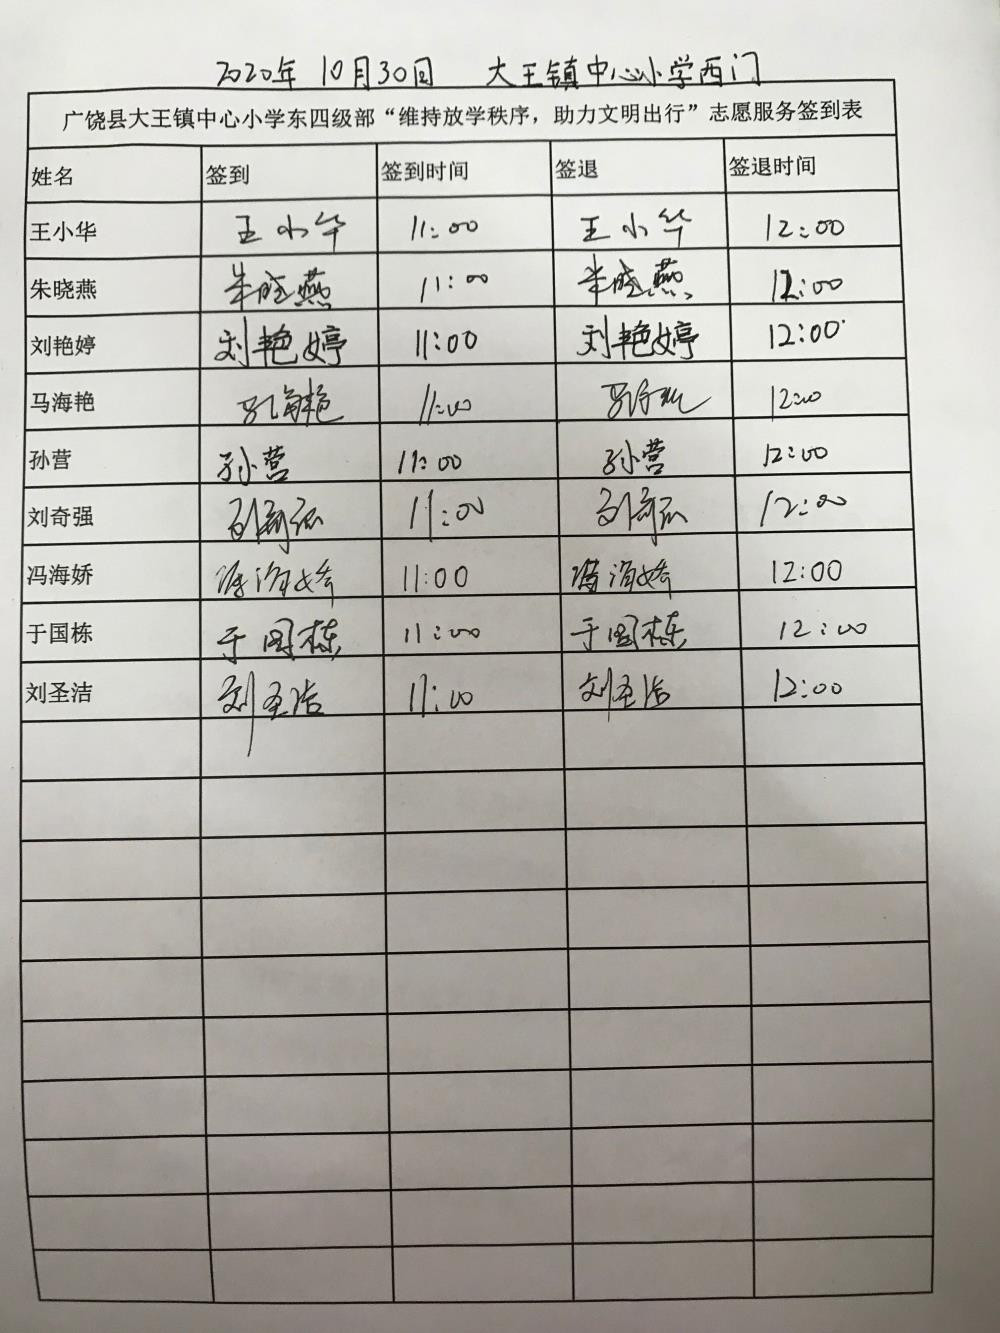 2020年 10月30日 大王镇中心小学西门
广饶县大王镇中心小学东四级部“维持放学秩序，助力文明出行”志愿服务签到表
姓名 签到 签到时间 签退 签退时间
王小华 王小华 11:00 王小华 12:00
朱晓燕 朱晓燕 11:00 朱晓燕 12:00
刘艳婷 刘艳婷 11:00 刘艳婷 12:00
马海艳 马海艳 11:00 马海艳 12:00
孙营 孙营 11:00 孙营 12:00
刘奇强 刘奇强 11:00 刘奇强 12:00
冯海娇 冯海娇 11:00 冯海娇 12:00
于国栋 于国栋 11:00 于国栋 12:00
刘圣洁 刘圣洁 11:00 刘圣洁 12:00